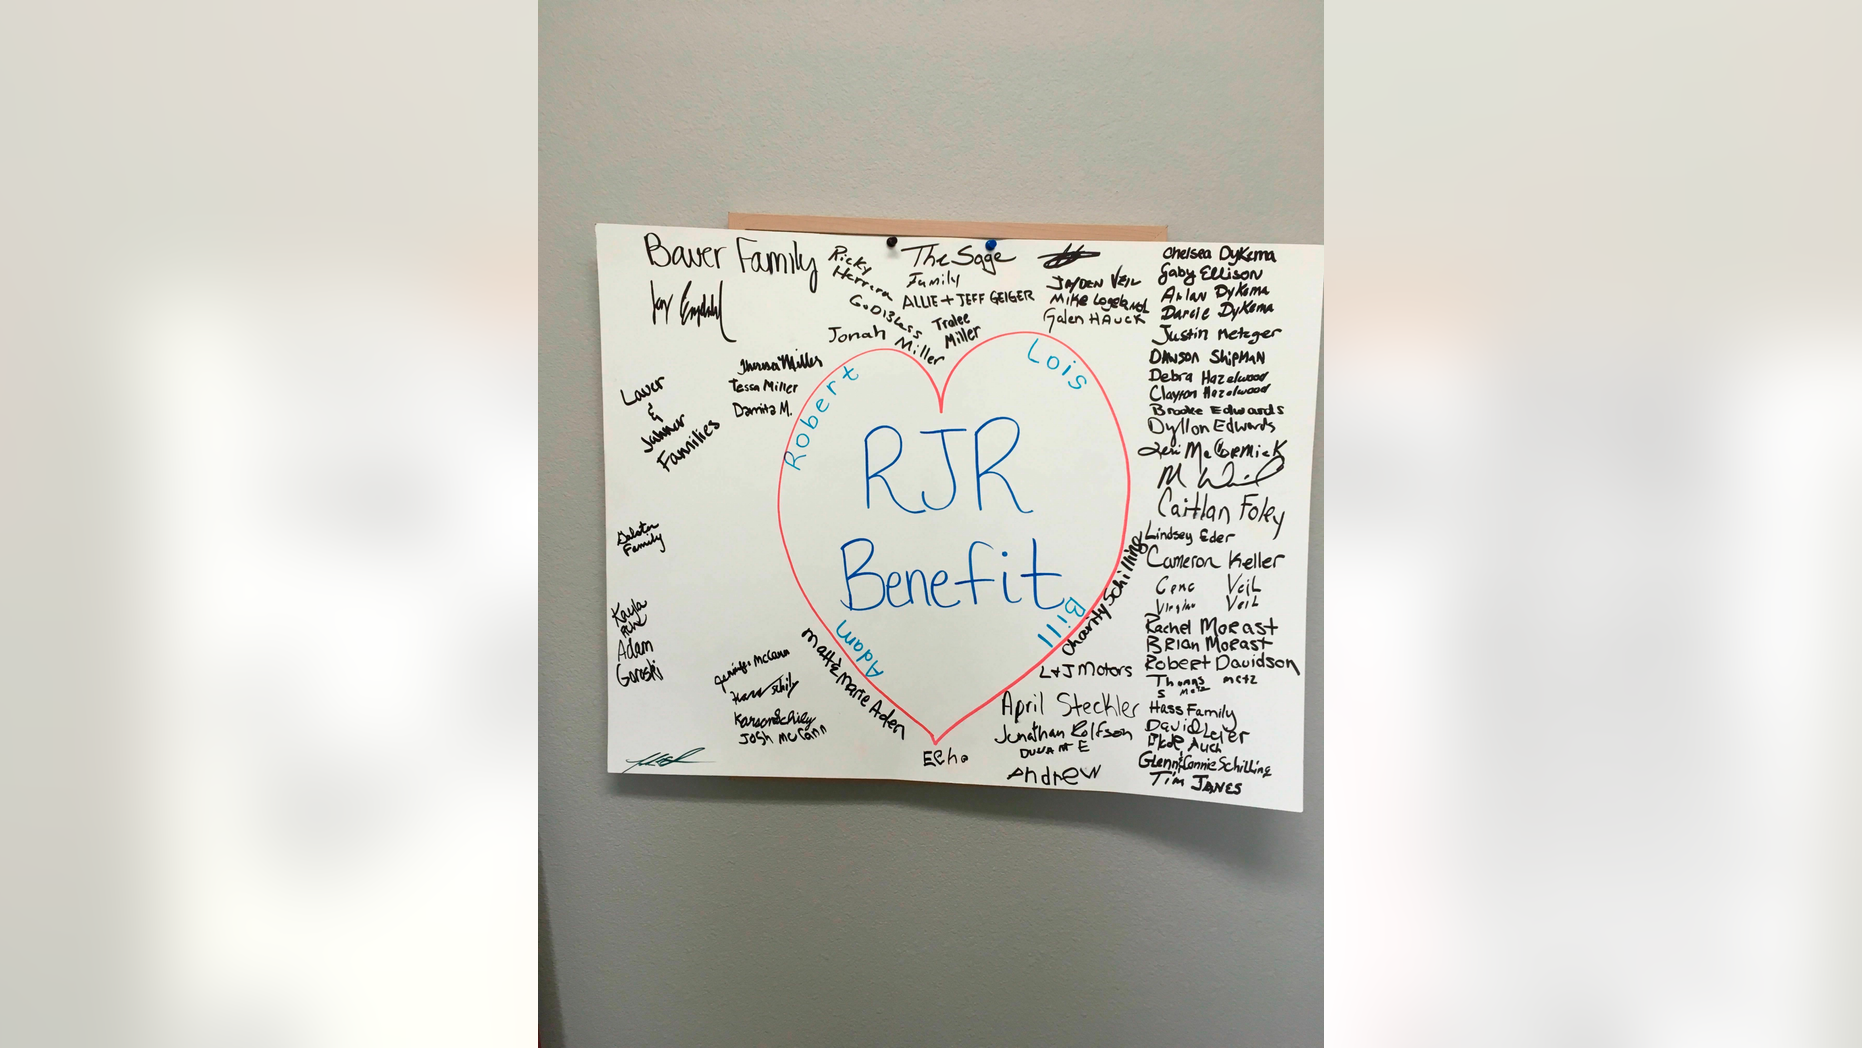 Bauer Family
Ricky
Herrera
God Bless
The Sage
Family
ALLIE + JEFF GEIGER
Jonah Miller
Tralee
Miller
JayDEN VEIL
Mike Logeland
Galen HAuck
Theresa Miller
Tessa Miller
Damita M.
Lauer
&
Jahner
Families
Family
Kayla
Adam
Goroski
Robert
Lois
RJR
Benefit
Adam
Bill
Jennifer McCann
Karson Schily
JOSh McCann
Matt & Marie Aden
Echo
Charity Schilling
L+J Motors
April Steckler
Jonathan Rolfson
Andrew
Chelsea DyKema
Gaby Ellison
Arlan DyKema
Darcie DyKema
Justin Metzger
DAWSON SHIPMAN
Debra Hazelwood
Clayton Hazelwood
Brooke Edwards
Dyllon Edwards
McCormick
Caitlan Foley
Lindsey Eder
Cameron Keller
Gene Veil
Virginia Veil
Rachel Morast
Brian Morast
Robert Davidson
Thomas Metz
Hass Family
David Leier
Auch
Glenn & Connie Schilling
Tim JANES